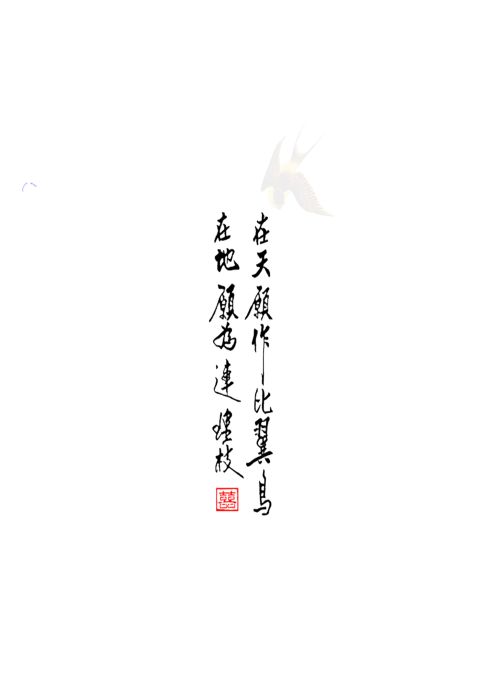 在天願作比翼鳥
在地願為連理枝
囍